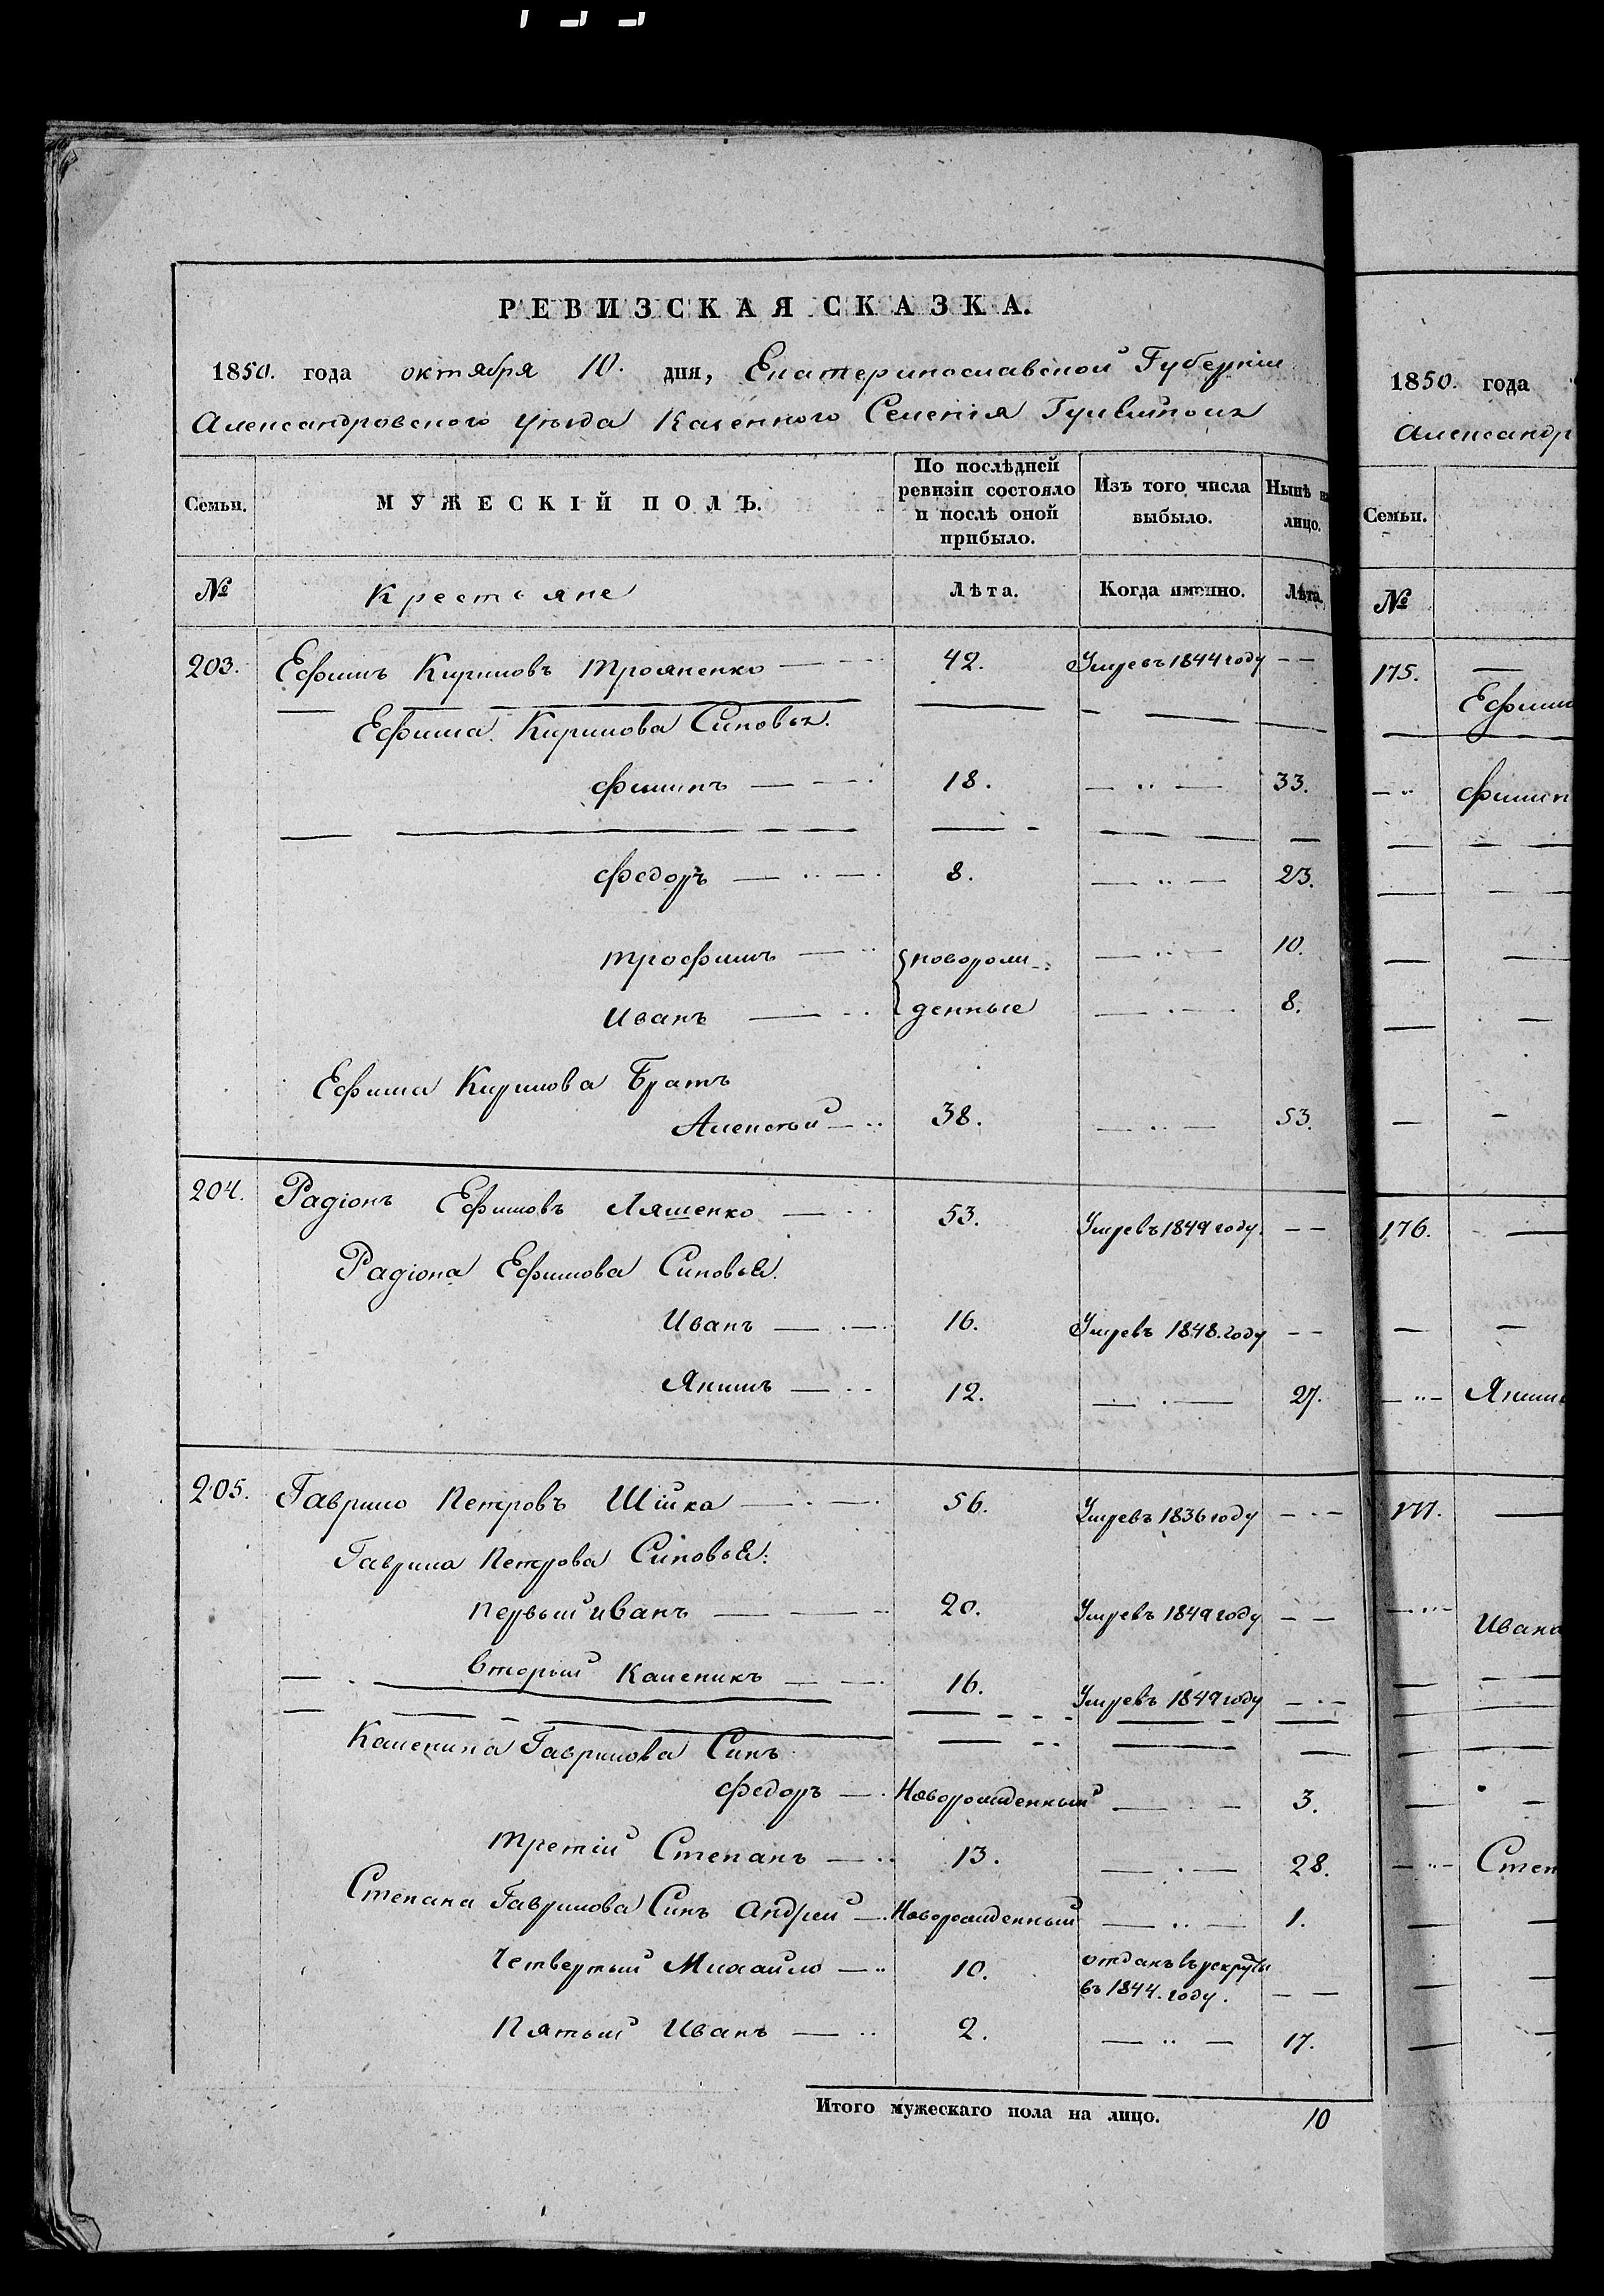 РЕВИЗСКАЯ СКАЗКА.
1850. года октября 10. дня, Екатеринославской Губерніи
Александровского уѣзда Казенного Селенія Гуляйполя
Семьи. МУЖЕСКІЙ ПОЛЪ. По послѣдней ревизіи состояло и послѣ оной прибыло. Изъ того числа выбыло. Нынѣ на лицо.
№ Крестьяне Лѣта. Когда именно. Лѣта.
203. Ефимъ Кириловъ Трояненко 42. Умревъ 1844 году
Ефима Кирилова Синовья.
Филипъ 18. 33.
Федоръ 8. 23.
Трофимъ новорож- 10.
Иванъ денные 8.
Ефима Кирилова Братъ
Алексѣй 38. 53.
204. Радіонъ Ефимовъ Ляшенко 53. Умревъ 1849 году.
Радіона Ефимова Синовья.
Иванъ 16. Умревъ 1848. году
Якимъ 12. 27.
205. Гаврило Петровъ Шійка 56. Умревъ 1836 году
Гаврила Петрова Синовья:
первый иванъ 20. Умревъ 1849 году
Вторый Каленикъ 16. Умревъ 1849 году
Каленика Гаврилова Синъ
Федоръ Новорожденный 3.
Третій Степанъ 13. 28.
Степана Гаврилова Синъ Андрей Новорожденный 1.
Четвертый Михайло 10. отданъ въ рекруты
въ 1844. году.
Пятый Иванъ 2. 17.
Итого мужескаго пола на лицо. 10
1850. года
Александр
Семьи.
№
175.
Ефима
Филип
176.
Якима
177.
Ивана
Степ